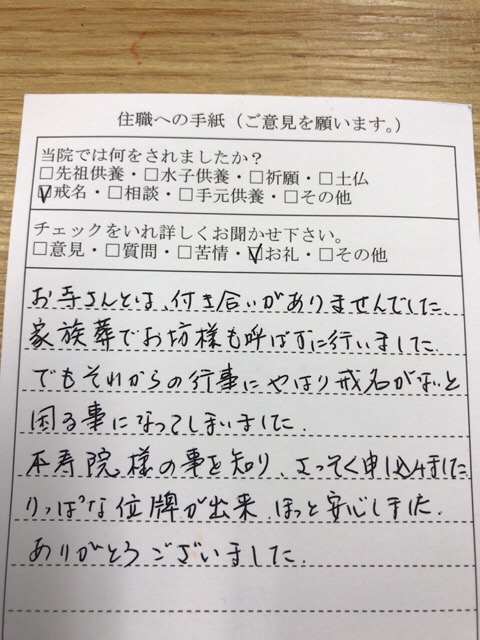 住職への手紙（ご意見を願います。）
当院では何をされましたか？
□先祖供養・□水子供養・□祈願・□土仏
☑戒名・□相談・□手元供養・□その他
チェックをいれ詳しくお聞かせ下さい。
□意見・□質問・□苦情・☑お礼・□その他
お寺さんとは、付き合いがありませんでした
家族葬でお坊様も呼ばずに行いました
でもそれからの行事にやはり戒名がないと
困る事になってしまいました.
本寿院様の事を知り、さっそく申し込みました
りっぱな位牌が出来、ほっと安心しました.
ありがとうございました.